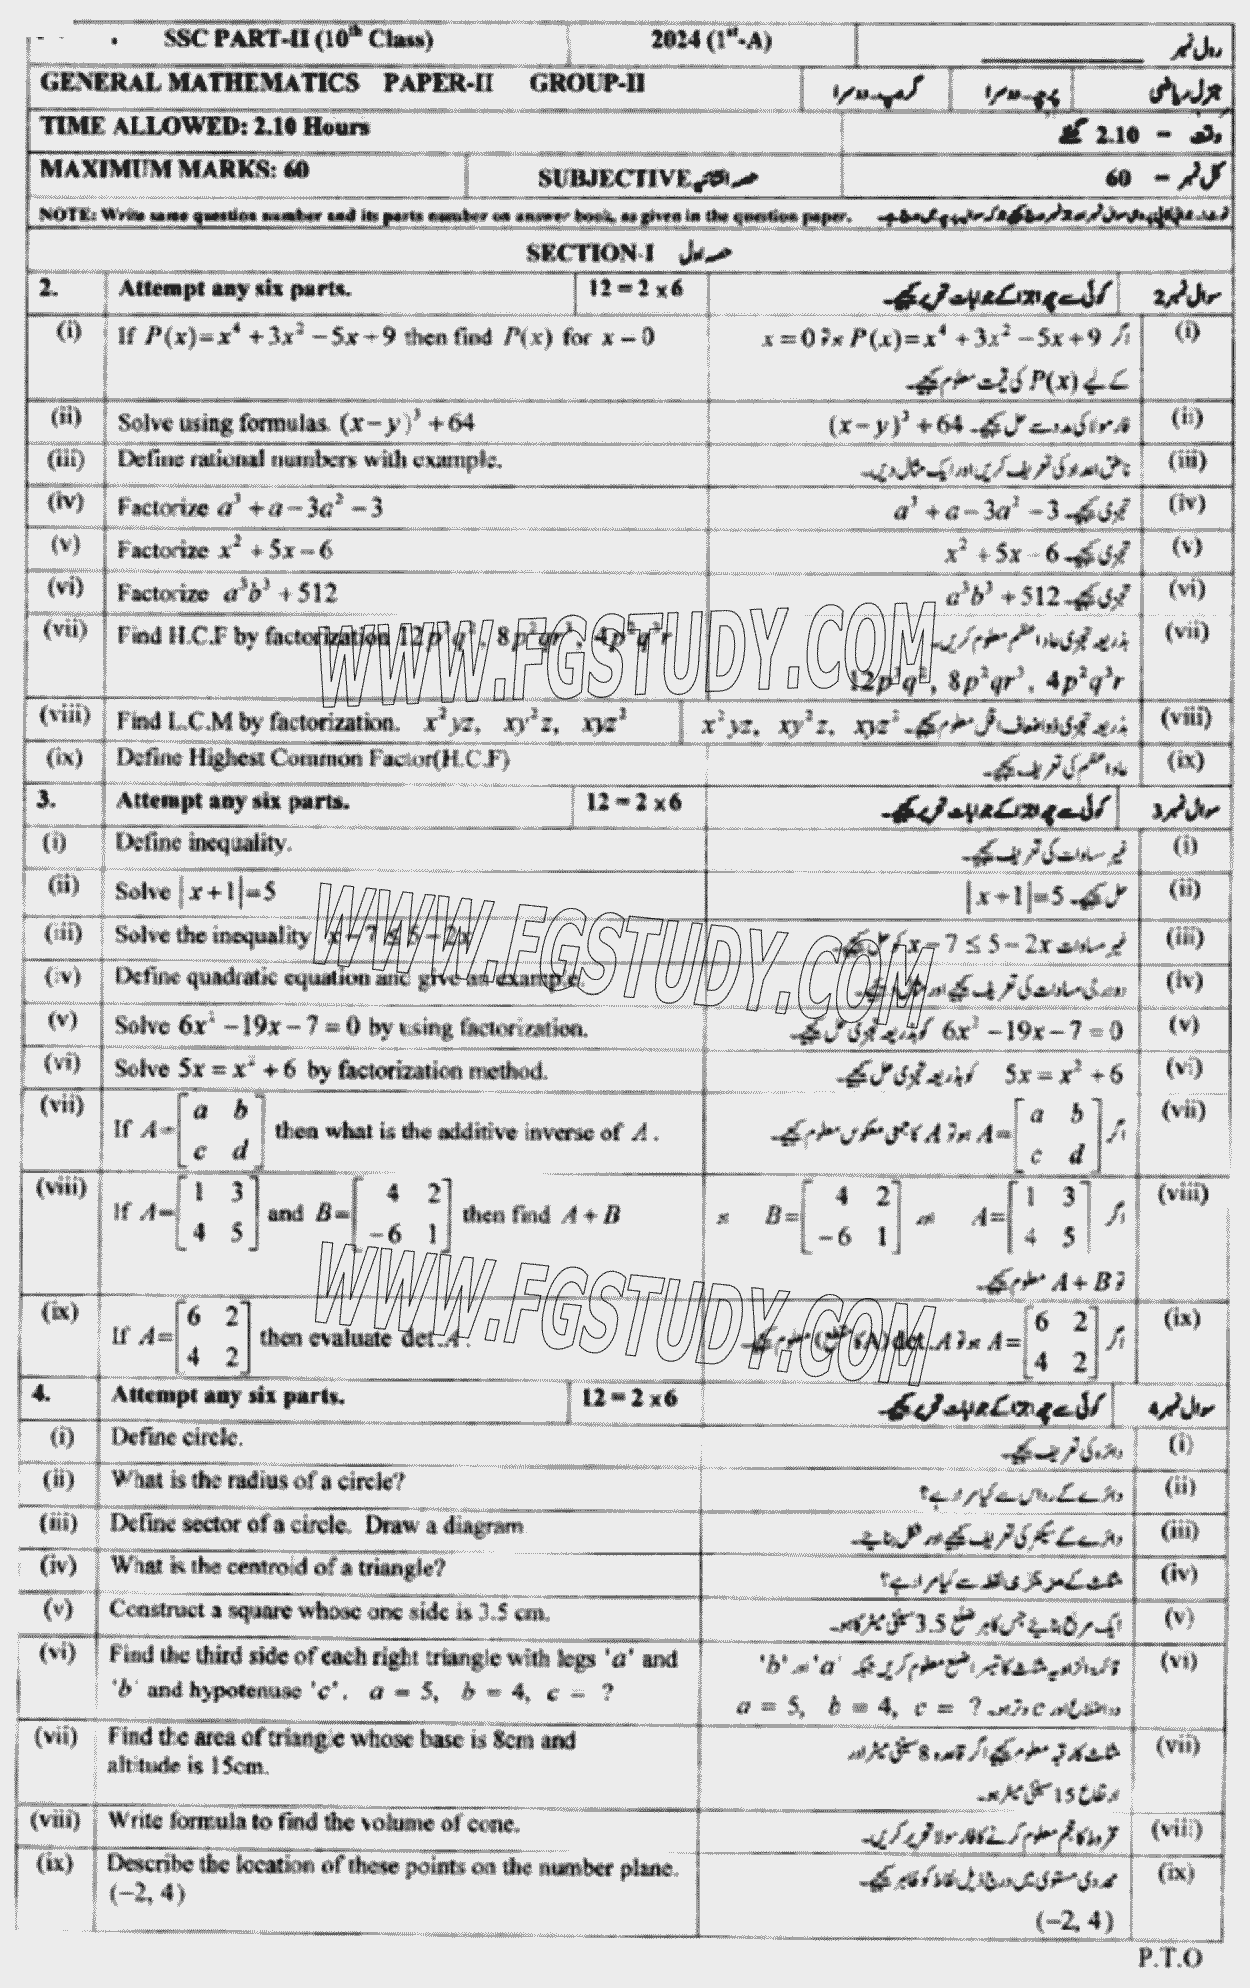 SSC PART-II (10th Class) 2024 (1st-A) رول نمبر
GENERAL MATHEMATICS PAPER-II GROUP-II گروپ۔دوسرا پرچہ۔دوسرا جنرل ریاضی
TIME ALLOWED: 2.10 Hours وقت = 2.10 گھنٹے
MAXIMUM MARKS: 60 SUBJECTIVE حصہ انشائیہ کل نمبر = 60
NOTE: Write same question number and its parts number on answer book, as given in the question paper.
SECTION-I حصہ اول
2. Attempt any six parts. 12 = 2 x 6 کوئی سے چھ اجزا کے جوابات تحریر کیجیے۔ سوال نمبر 2
(i) If P(x)=x⁴+3x²−5x+9 then find P(x) for x = 0 اگر P(x)=x⁴+3x²−5x+9 ہو تو x=0 (i)
کے لیے P(x) کی قیمت معلوم کیجیے۔
(ii) Solve using formulas. (x−y)³+64 فارمولا کی مدد سے حل کیجیے۔ (x−y)³+64 (ii)
(iii) Define rational numbers with example. ناطق اعداد کی تعریف کریں اور ایک مثال دیں۔ (iii)
(iv) Factorize a³+a−3a²−3 تجزی کیجیے۔ a³+a−3a²−3 (iv)
(v) Factorize x²+5x−6 تجزی کیجیے۔ x²+5x−6 (v)
(vi) Factorize a³b³+512 تجزی کیجیے۔ a³b³+512 (vi)
(vii) Find H.C.F by factorization 12p³q², 8p²qr³, 4p²q³r بذریعہ تجزی عاد اعظم معلوم کریں۔ (vii)
12p³q², 8p²qr³, 4p²q³r
(viii) Find L.C.M by factorization. x²yz, xy²z, xyz² بذریعہ تجزی ذواضعاف اقل معلوم کیجیے۔ x²yz, xy²z, xyz² (viii)
(ix) Define Highest Common Factor(H.C.F) عاد اعظم کی تعریف کیجیے۔ (ix)
3. Attempt any six parts. 12 = 2 x 6 کوئی سے چھ اجزا کے جوابات تحریر کیجیے۔ سوال نمبر 3
(i) Define inequality. غیر مساوات کی تعریف کیجیے۔ (i)
(ii) Solve |x+1|=5 حل کیجیے۔ |x+1|=5 (ii)
(iii) Solve the inequality x−7 ≤ 5−2x غیر مساوات x−7 ≤ 5−2x کو حل کیجیے۔ (iii)
(iv) Define quadratic equation and give an example. دو درجی مساوات کی تعریف کیجیے اور مثال دیجیے۔ (iv)
(v) Solve 6x²−19x−7=0 by using factorization. 6x²−19x−7=0 کو بذریعہ تجزی حل کیجیے۔ (v)
(vi) Solve 5x = x²+6 by factorization method. 5x = x²+6 کو بذریعہ تجزی حل کیجیے۔ (vi)
(vii) If A=[a b; c d] then what is the additive inverse of A. اگر A=[a b; c d] ہو تو A کا جمعی معکوس معلوم کیجیے۔ (vii)
(viii) If A=[1 3; 4 5] and B=[4 2; −6 1] then find A+B اگر A=[1 3; 4 5] اور B=[4 2; −6 1] ہو (viii)
تو A+B معلوم کیجیے۔
(ix) If A=[6 2; 4 2] then evaluate det.A. اگر A=[6 2; 4 2] ہو تو det.A (A کا مقطع) معلوم کیجیے۔ (ix)
4. Attempt any six parts. 12 = 2 x 6 کوئی سے چھ اجزا کے جوابات تحریر کیجیے۔ سوال نمبر 4
(i) Define circle. دائرہ کی تعریف کیجیے۔ (i)
(ii) What is the radius of a circle? دائرے کے رداس سے کیا مراد ہے؟ (ii)
(iii) Define sector of a circle. Draw a diagram دائرے کے سیکٹر کی تعریف کیجیے اور شکل بنائیے۔ (iii)
(iv) What is the centroid of a triangle? مثلث کے مرکزی نقطہ سے کیا مراد ہے؟ (iv)
(v) Construct a square whose one side is 3.5 cm. ایک مربع بنائیے جس کا ہر ضلع 3.5 سینٹی میٹر کا ہو۔ (v)
(vi) Find the third side of each right triangle with legs 'a' and قائمہ الزاویہ مثلث کا تیسرا ضلع معلوم کریں جبکہ 'a' اور 'b' (vi)
'b' and hypotenuse 'c'. a = 5, b = 4, c = ? دو اضلاع اور c وتر ہو۔ a = 5, b = 4, c = ?
(vii) Find the area of triangle whose base is 8cm and مثلث کا رقبہ معلوم کیجیے اگر قاعدہ 8 سینٹی میٹر اور (vii)
altitude is 15cm. ارتفاع 15 سینٹی میٹر ہو۔
(viii) Write formula to find the volume of cone. مخروط کا حجم معلوم کرنے کا فارمولا تحریر کریں۔ (viii)
(ix) Describe the location of these points on the number plane. عددی مستوی میں درج ذیل نقاط کو ظاہر کیجیے۔ (ix)
(−2, 4) (−2, 4)
P.T.O
WWW.FGSTUDY.COM
WWW.FGSTUDY.COM
WWW.FGSTUDY.COM